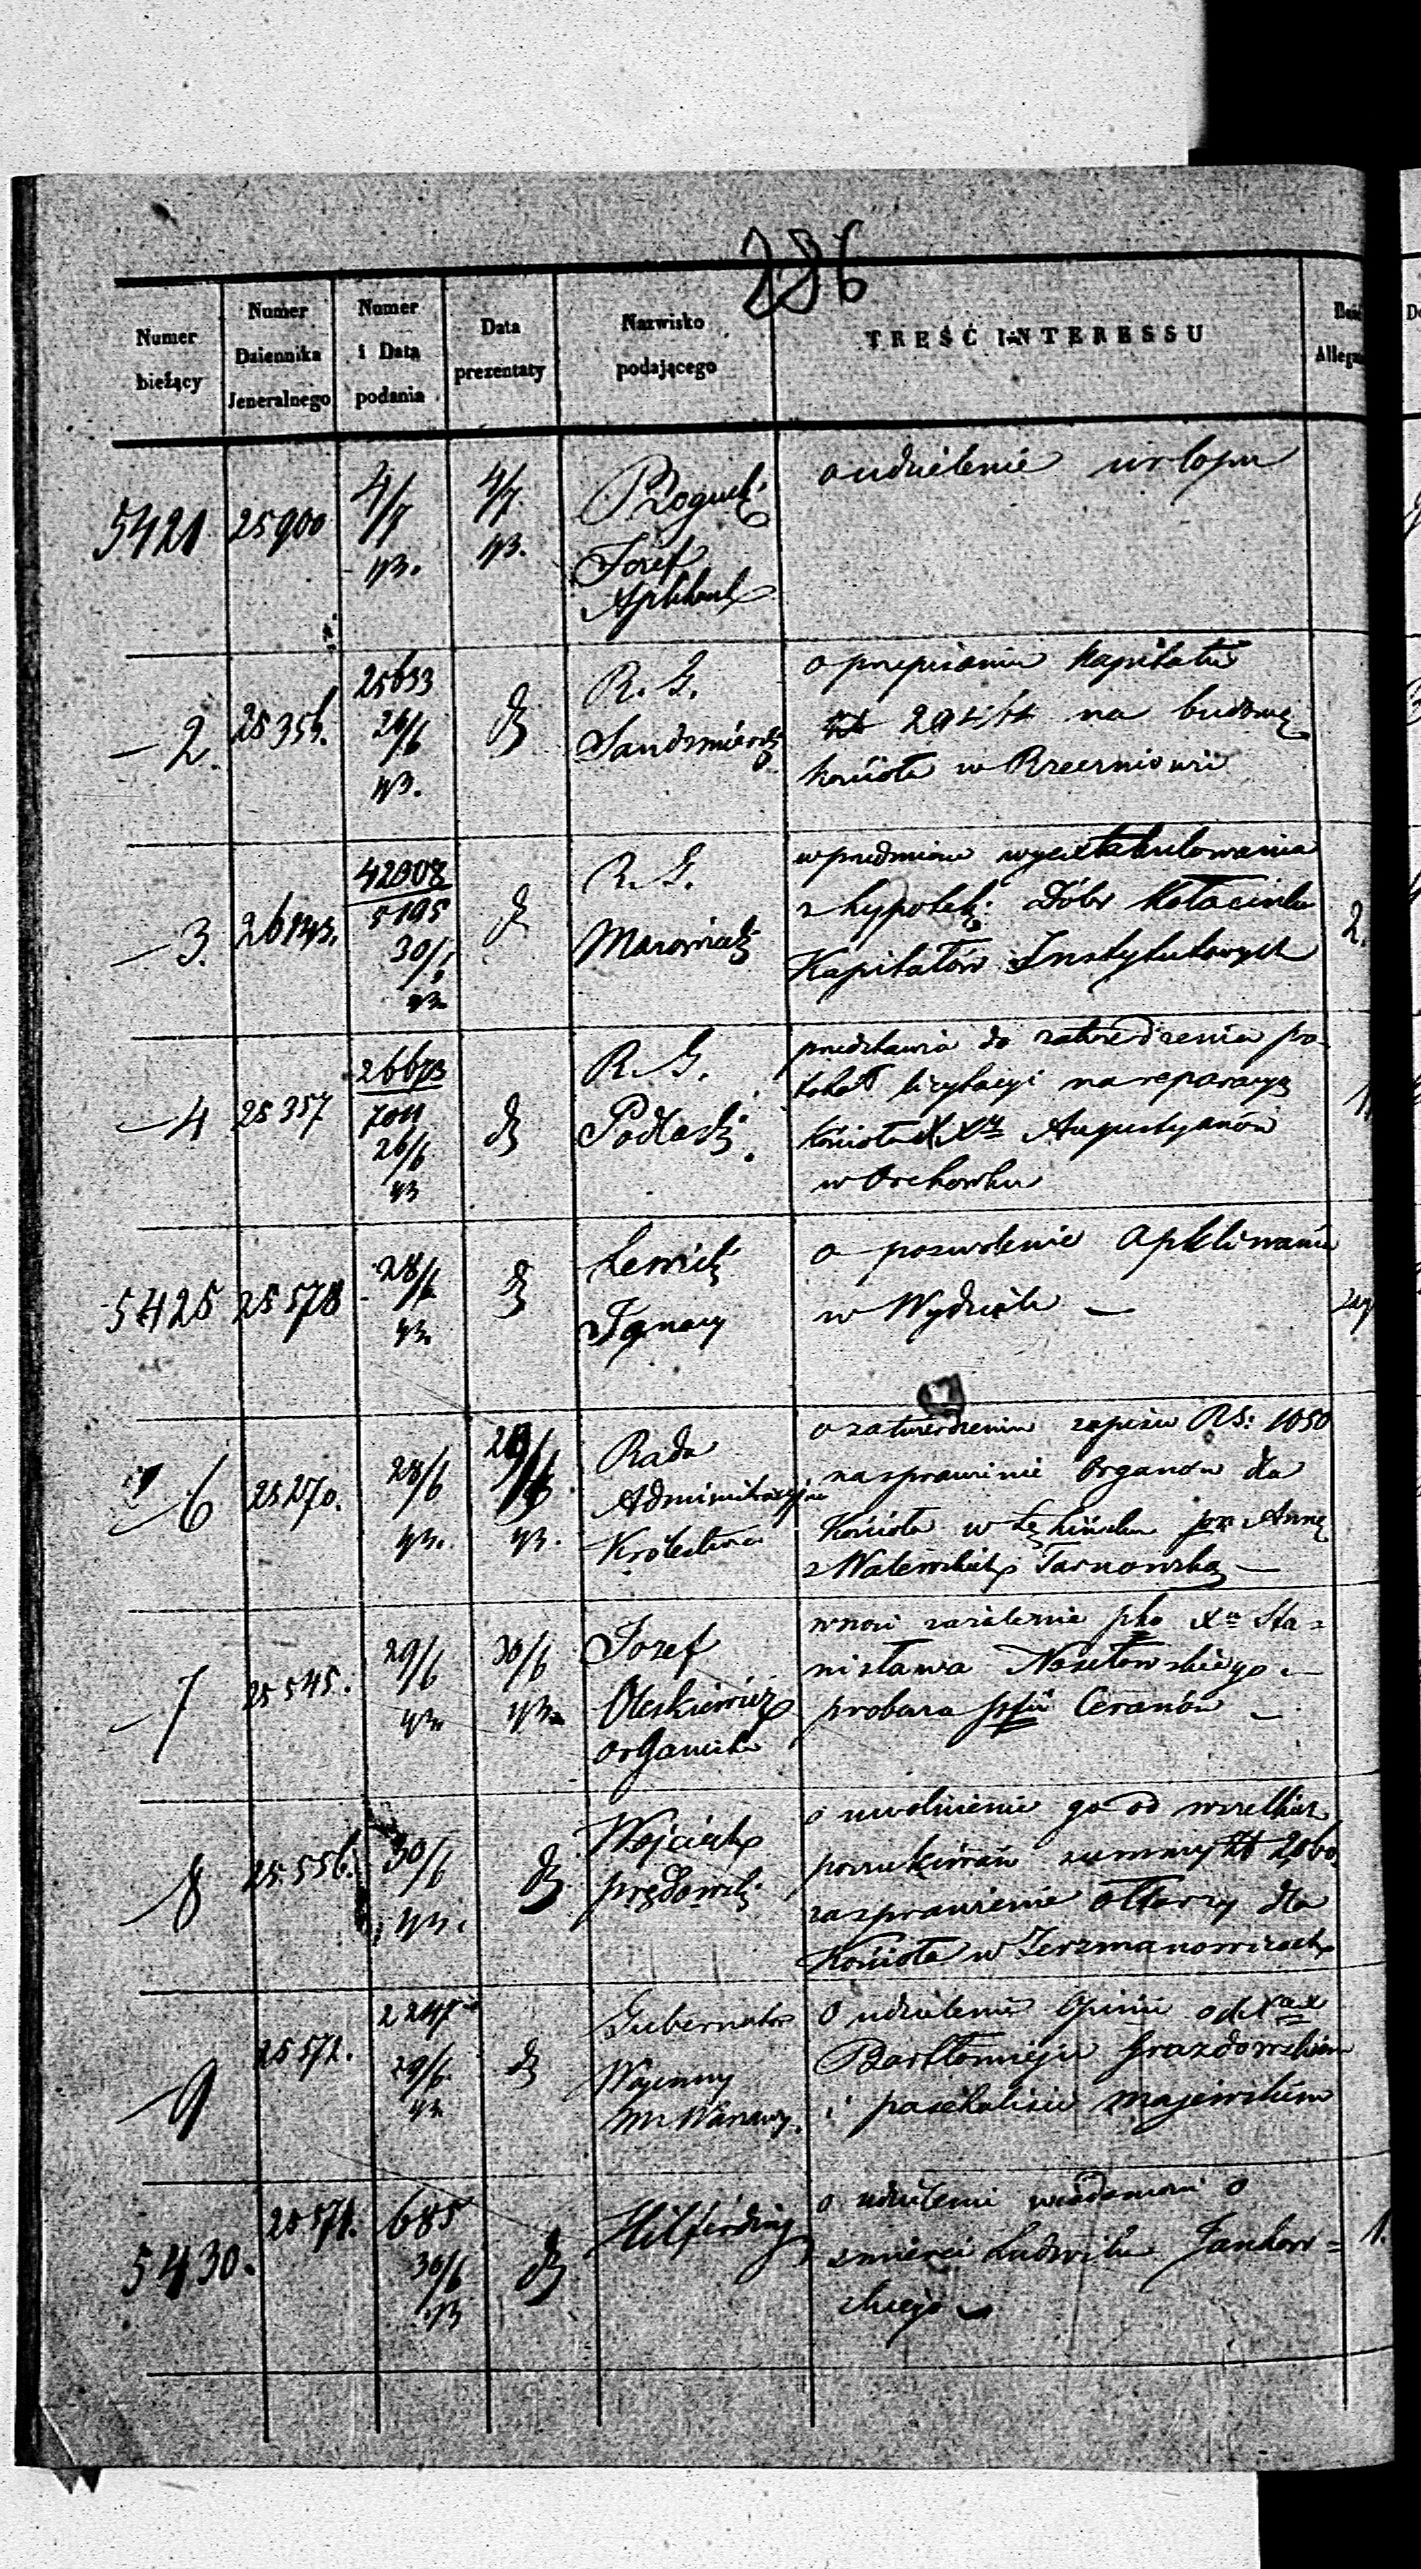 236
Numer bieżący
Numer Dziennika Jeneralnego
Numer i Data podania
Data prezentaty
Nazwisko podającego
TREŚĆ INTERESSU
5421 25900 4/7 43. 4/7 43.
Józef
o udzielenie urlopu
2. 25356. 25633 26/6 43.
R. G.
Sandomierski
o przepisanie Kapitału
na budowę
kościoła w Rzeczniowie
3. 26143. 42908 5195 30/6 43.
R. G.
Mazowiecki
w przedmiocie wyextabulowania
z hypoteki Dóbr Kołacinka
Kapitałów Instytutowych
2.
4 25357 26673 7011 26/6 43
R. G.
Podlaski
przedstawia do zatwierdzenia pro
tokół licytacyi na reparacyę
kościoła XXy Augustyanów
w Orchowku
5425 25578 28/6 43.
Lewicki
Ignacy
o pozwolenie aplikowania
w Wydziale —
6 25270. 28/6 43. 43.
Rada
Administracyjna
Królestwa
o zatwierdzenie zapisu RS: 1050
na sprawienie Organów dla
Kościoła w przez Annę
z Walewskich Tarnowską —
7 25545. 29/6 43 30/6 43
Jozef
Oleskiewicz
organista
wnosi zażalenie pko Xu Sta=
nisława
proboszcza Ceranów —
8 25556. 30/6 43.
Wojciech
o uwolnienie go od wszelkich
poszukiwań summy Zł 2060
za sprawienie ołtarzy dla
Kościoła w Jerzmanowicach
9 25572. 2247 29/6 43
Gubernator
Wojenny
M. Warszawy.
o udzielenie Opinii o
Bartłomieju Grazdowskim
i Paschalisie Majewskim
5430. 25571. 685 30/6 43
Hilferding
o udzielenie wiadomości o
śmierci Ludwika Jankow=
skiego
1.